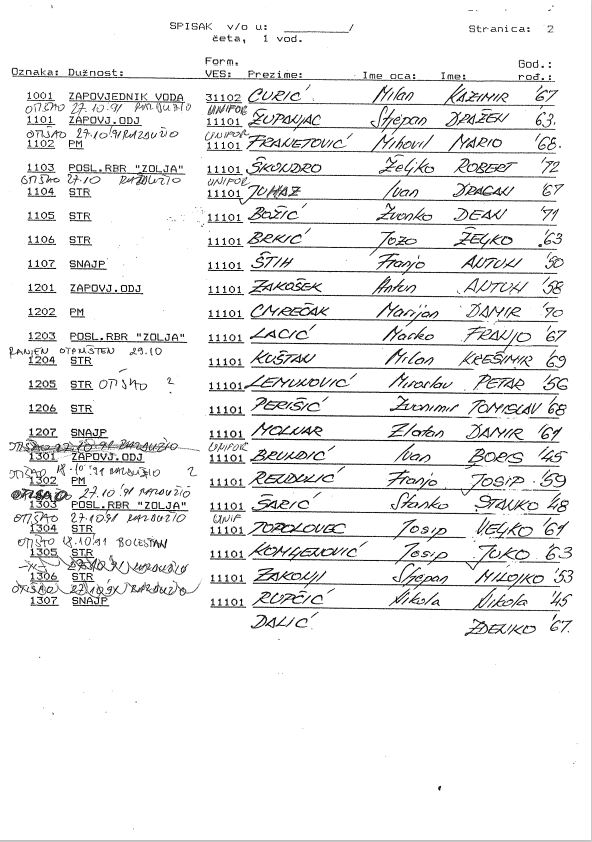 SPISAK v/o u: __________/ Stranica: 2
četa, 1 vod.
Form. God.:
Oznaka: Dužnost: VES: Prezime: Ime oca: Ime: rođ.:
1001 ZAPOVJEDNIK VODA 31102 CURIĆ Milan KAZIMIR '67
OTIŠAO 27.10.91 RAZDUŽIO UNIFOR
1101 ZAPOVJ.ODJ 11101 ŽUPANJAC Stjepan DRAŽEN 63.
OTIŠAO 27.10.'91 RAZDUŽIO UNIFOR
1102 PM 11101 FRANETOVIĆ Mihovil MARIO '68.
1103 POSL.RBR "ZOLJA" 11101 ŠKONDRO Željko ROBERT '72
OTIŠAO 27.10 RAZDUŽIO UNIFOR
1104 STR 11101 JUHAZ Ivan DRAGAN '67
1105 STR 11101 BOŽIĆ Zvonko DEAN '71
1106 STR 11101 BRKIĆ Jozo ŽELJKO '63
1107 SNAJP 11101 ŠTIH Franjo ANTUN '50
1201 ZAPOVJ.ODJ 11101 ZAKOŠEK Antun ANTUN '58
1202 PM 11101 CMREČAK Marijan DAMIR '70
1203 POSL.RBR "ZOLJA" 11101 LACIĆ Marko FRANJO '67
RANJEN OTPUŠTEN 29.10
1204 STR 11101 KUŠTAN Milan KREŠIMIR '69
1205 STR OTIŠAO ? 11101 LEMUNOVIĆ Miroslav PETAR '56
1206 STR 11101 PERIŠIĆ Zvonimir TOMISLAV '68
1207 SNAJP 11101 MOLNAR Zlatan DAMIR '61
OTIŠAO 27.10.91 RAZDUŽIO UNIFOR
1301 ZAPOVJ.ODJ 11101 BRUNDIĆ Ivan BORIS '45
OTIŠAO 18.10.'91 RAZDUŽIO ?
1302 PM 11101 Franjo JOSIP '59
OTIŠAO 27.10.'91 RAZDUŽIO
1303 POSL.RBR "ZOLJA" 11101 ŠARIĆ Stanko STANKO '48
OTIŠAO 27.10.'91 RAZDUŽIO UNIF
1304 STR 11101 TOPOLOVEC Josip VELJKO '61
OTIŠAO 18.10.'91 BOLESTAN
1305 STR 11101 KOMLJENOVIĆ Josip JUKO '63
27.10.'91 RAZDUŽIO
1306 STR 11101 Stjepan MILOJKO '53
OTIŠAO 27.10.'91 RAZDUŽIO
1307 SNAJP 11101 RUPČIĆ Nikola Nikola '45
DALIĆ ZDENKO '67.